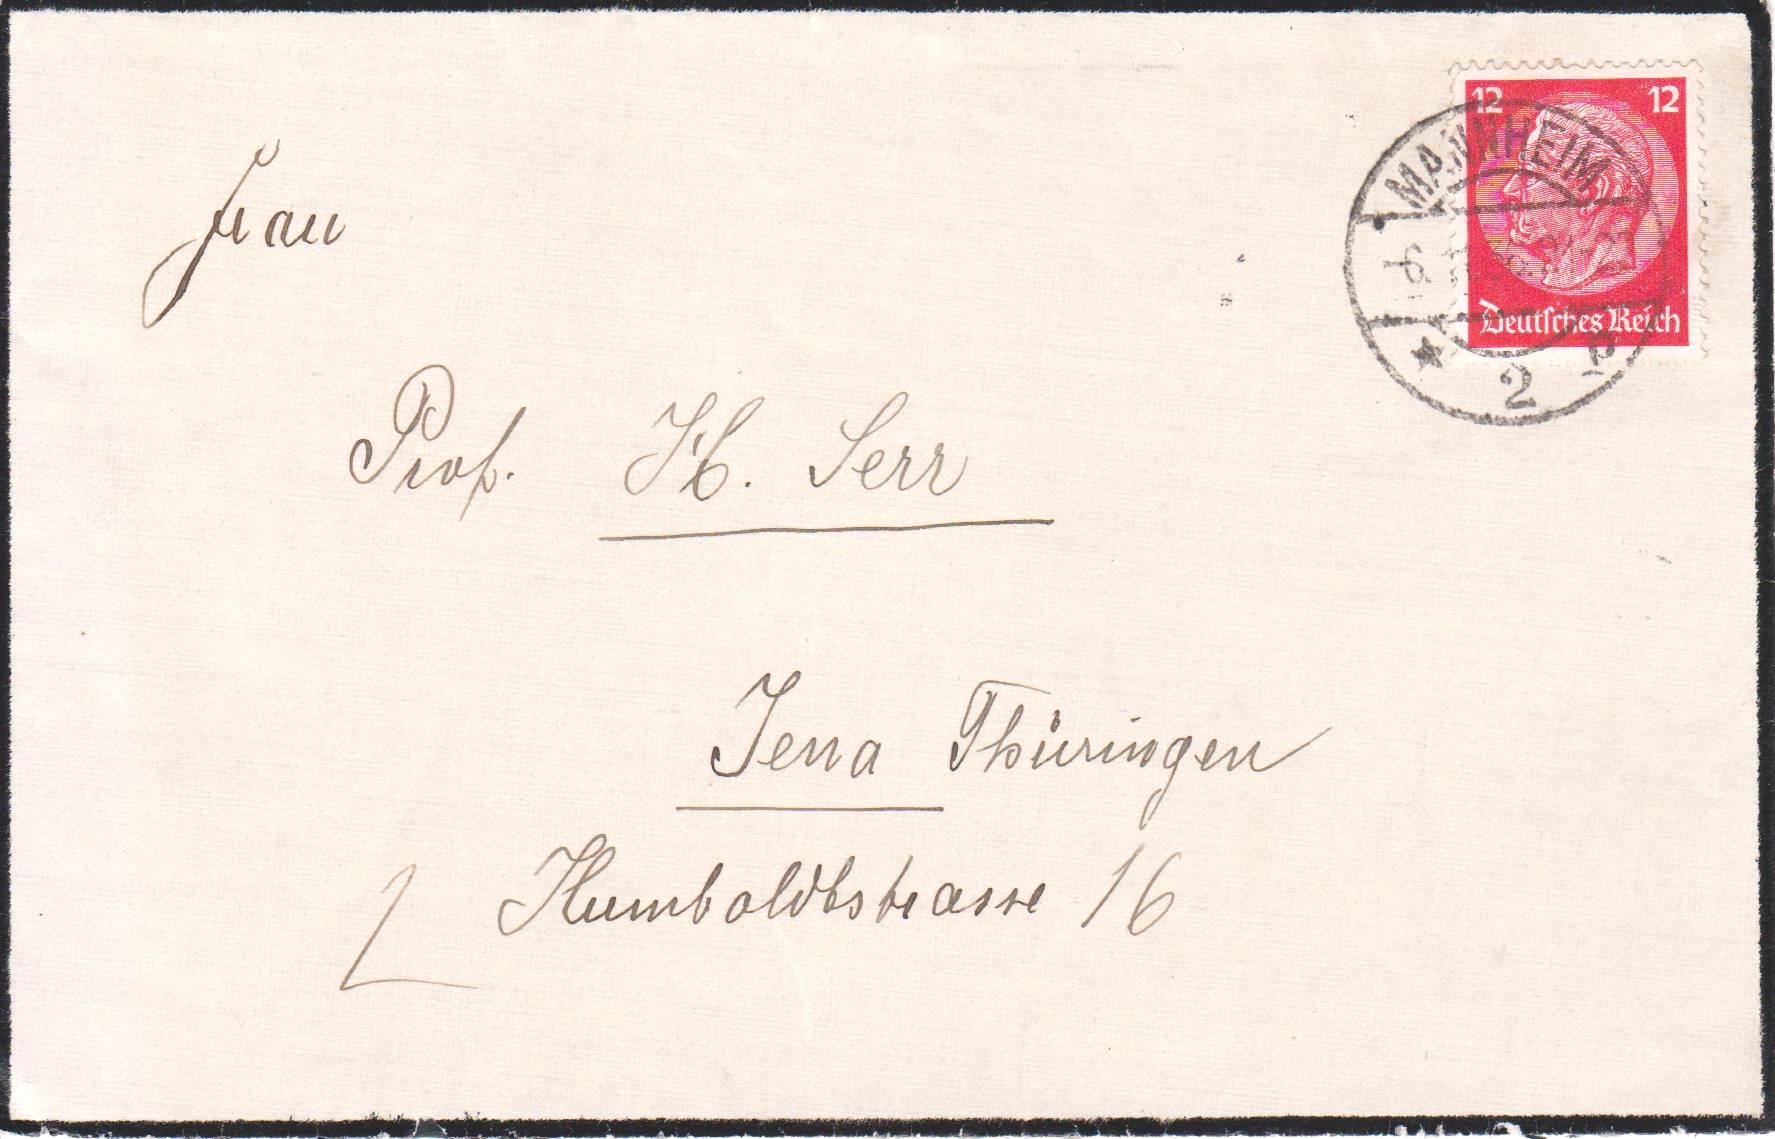 12 12
MANNHEIM
Deutsches Reich
2
Frau
Prof. H. Serr
Jena Thüringen
Humboldtstrasse 16